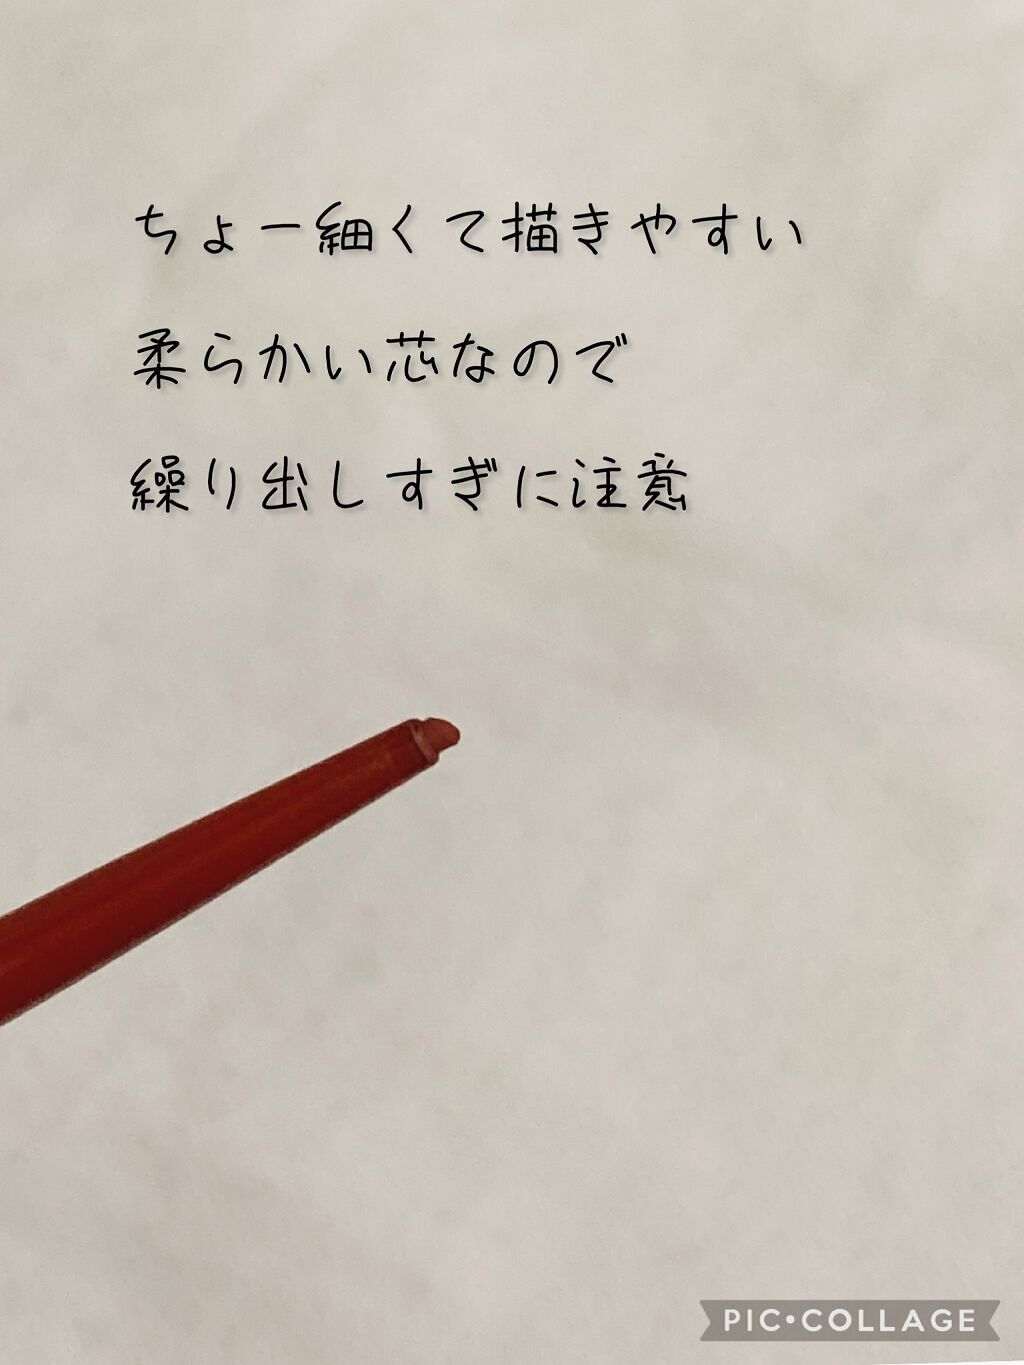 ちょー細くて描きやすい
柔らかい芯なので
繰り出しすぎに注意
PIC•COLLAGE